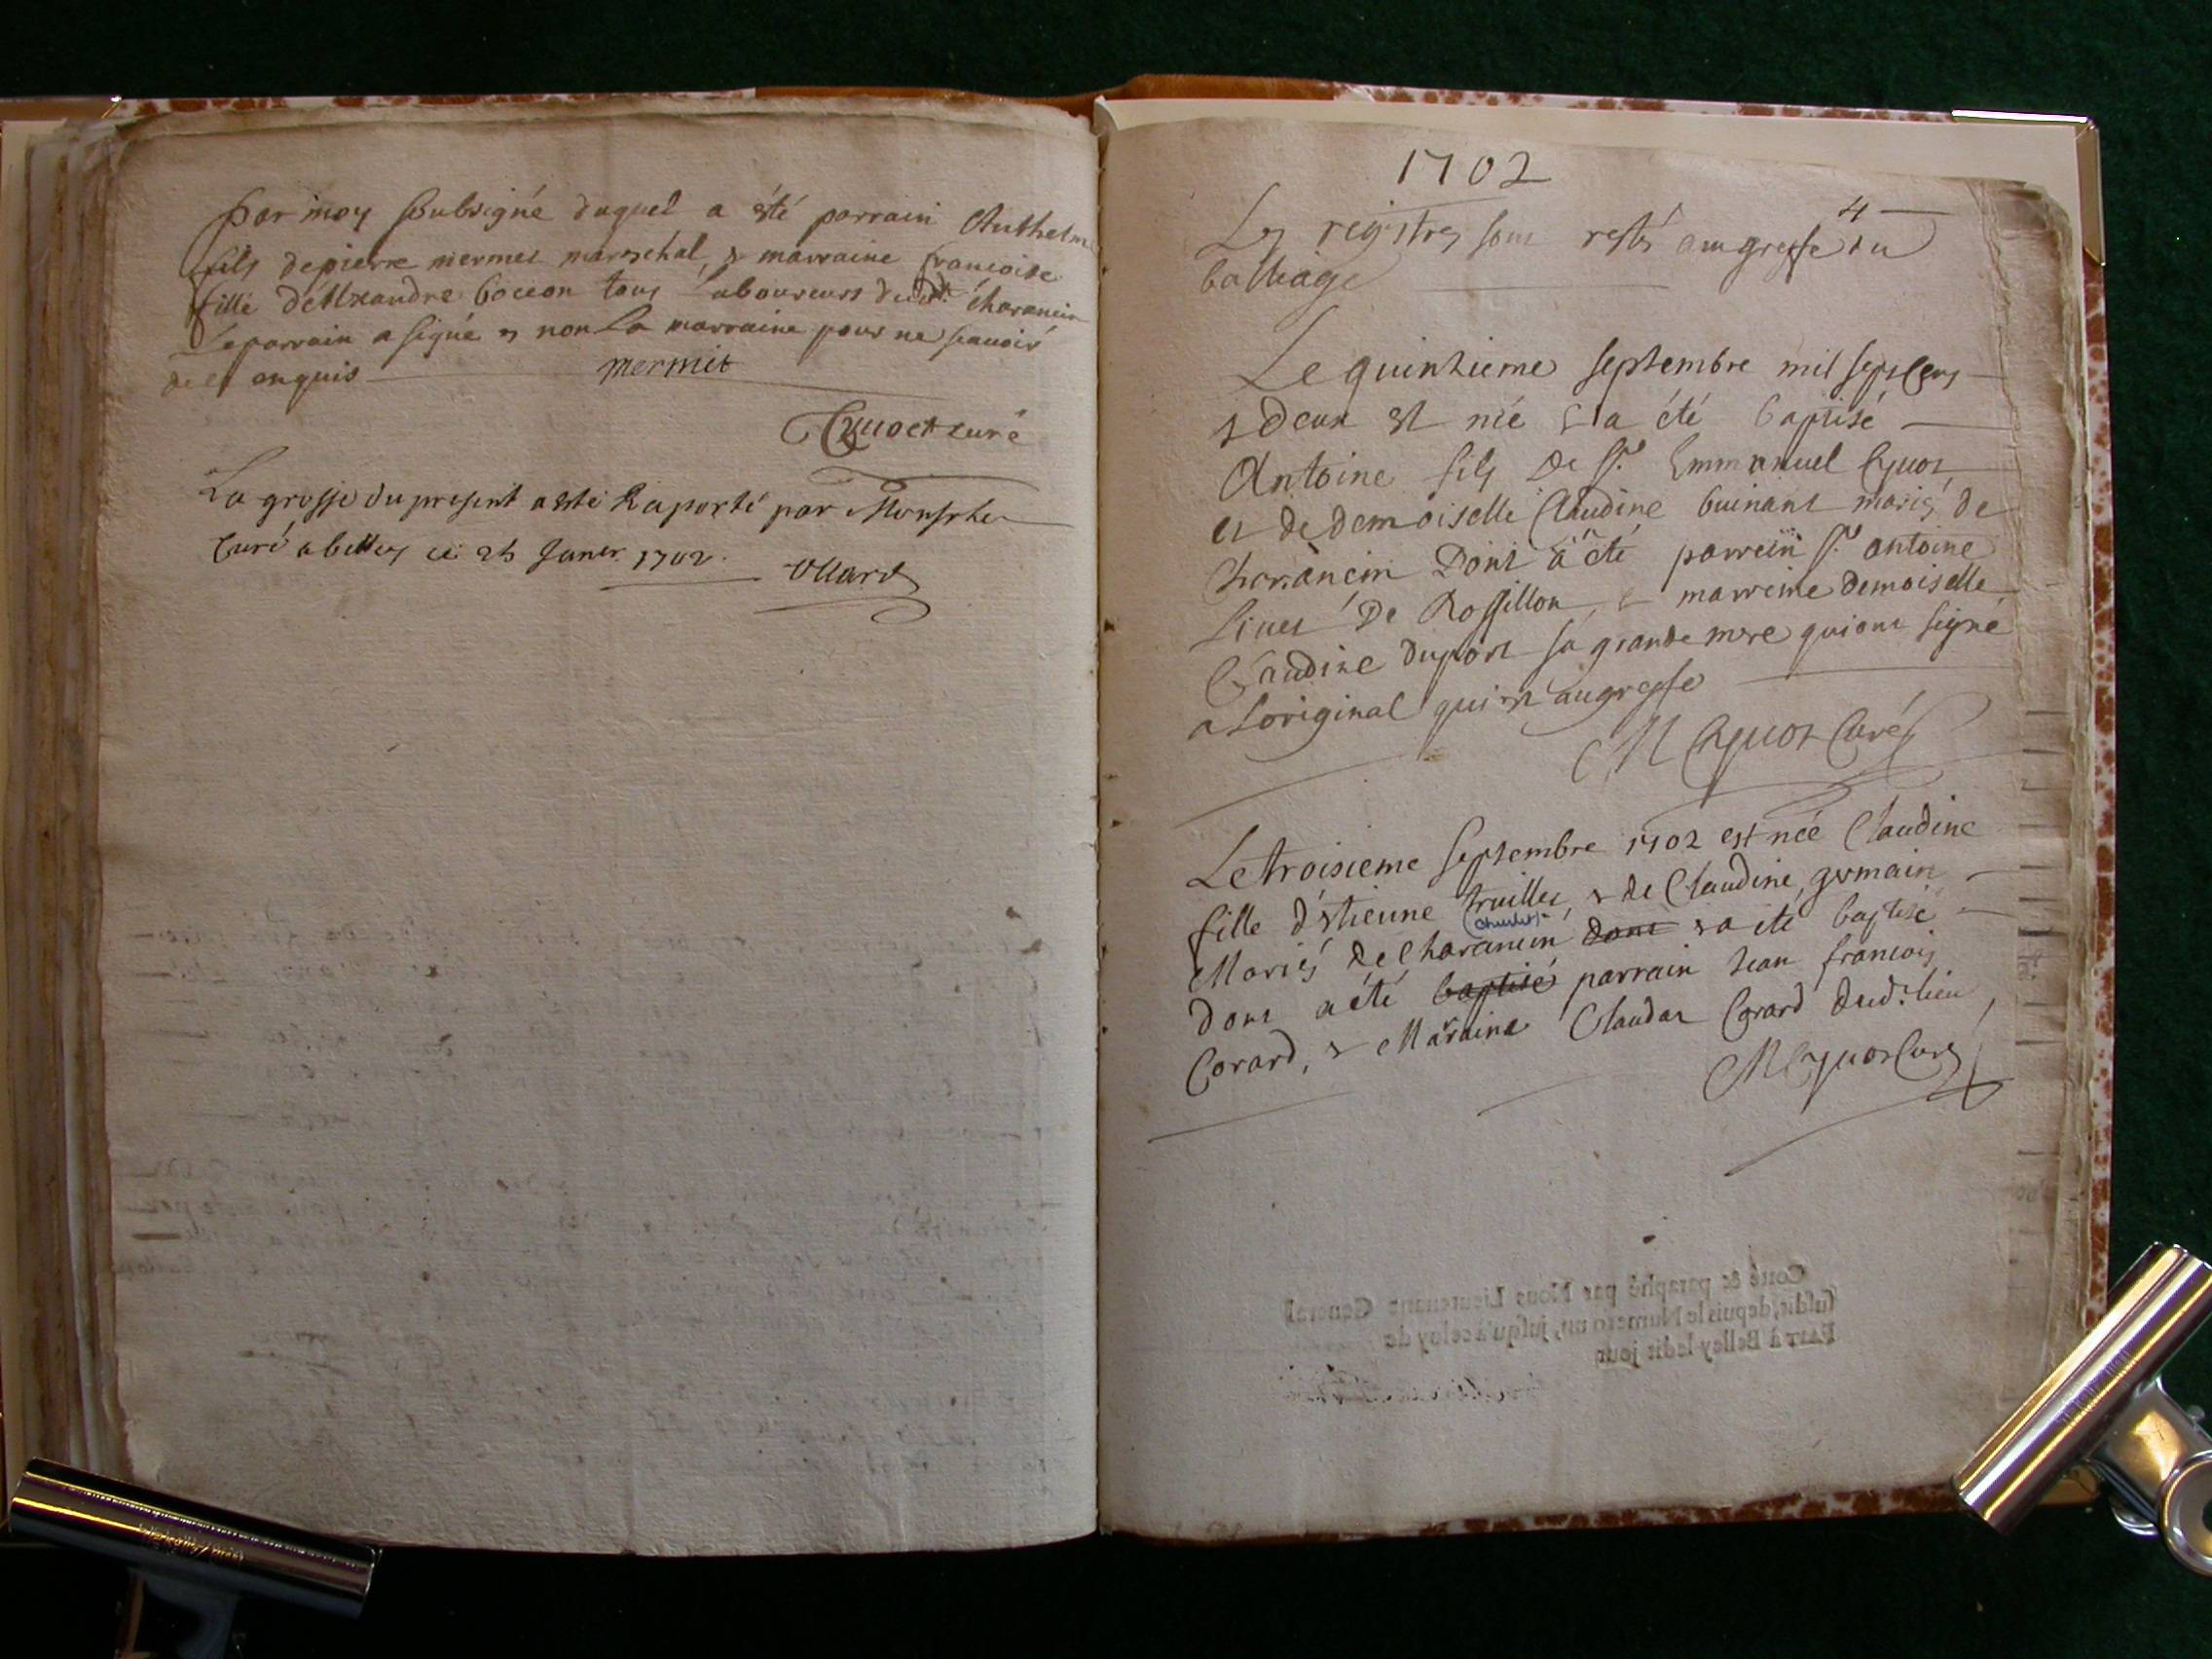 par moy soubsigné duquel a été parrain Anthelm
fils de pierre mermet mareschal, & marraine francoise
fille d'Alexandre bocion tous laboureurs dudt. charancin
Le parrain a signé & non La marraine pour ne scauoir
de ce enquis mermit
Cquoct curé
La grosse du present a esté Raporté par Monsr le
Curé a belley ce 25 Janer 1702.
1702
4
Les registres sont restés au greffe du
balliage
Le quinzieme septembre mil sept cens
& deux est née & a été baptisé
Antoine fils De Sr. Emmanuel Cyuot
et de demoiselle Claudine buinant mariés de
charancin Dont a été parrein Sr. antoine
De Rossillon, & marreine demoiselle
Claudine duport sa grande mere qui ont signé
a Loriginal qui est au greffe
M Cyuot Curé
Le troisieme septembre 1702 est née Claudine
fille d'étienne truillet, & de Claudine germain
(Charlet)
Mariés de Charancin dont & a été baptisé
dont a été baptisé parrain Jean francois
Corard, & Maraine Claudaz Corard dud. lieu
M Cyuot Curé
Cotté & paraphé par Nous Lieutenant General
susdit, depuis le Numero un, jusqu'à celuy de
Fait à Belley ledit jour